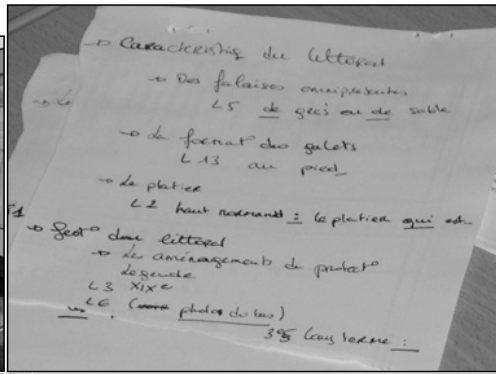 → Caracteristiq du littoral
→ Des falaises omnipresentes
L5 de grès ou de sable
→ Le format° des galets
L 13 au pied
→ Le platier
L2 haut normand : le platier qui est
→ Gest° du littoral
→ Les aménagements de protect°
Legende
L3 XIXe
L6 ( photos du bas)
Long terme :